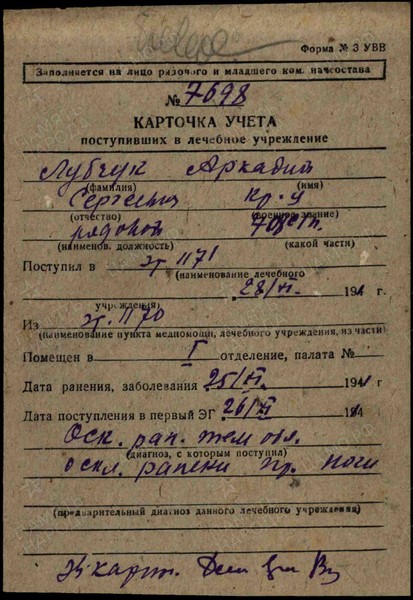 Форма № 3 УВВ
Заполняется на лицо рядового и младшего ком. начсостава
№ 7698
КАРТОЧКА УЧЕТА
поступивших в лечебное учреждение
Лубчук Аркадий
(фамилия) (имя)
Сергеевич кр-ц
(отчество) (военное звание)
рядовой
(наименов. должность) (какой части)
Поступил в эг 1171
(наименование лечебного
28/XI. 1941 г.
учреждения)
Из эг. 1170
(наименование пункта медпомощи, лечебного учреждения, из части)
Помещен в I отделение, палата №
Дата ранения, заболевания 25/XI 1941 г.
Дата поступления в первый ЭГ 26/XI 1941
Оск. ран. тем обл.
(диагноз, с которым поступил)
оскл. ранени пр. ноги
(предварительный диагноз данного лечебного учреждения)